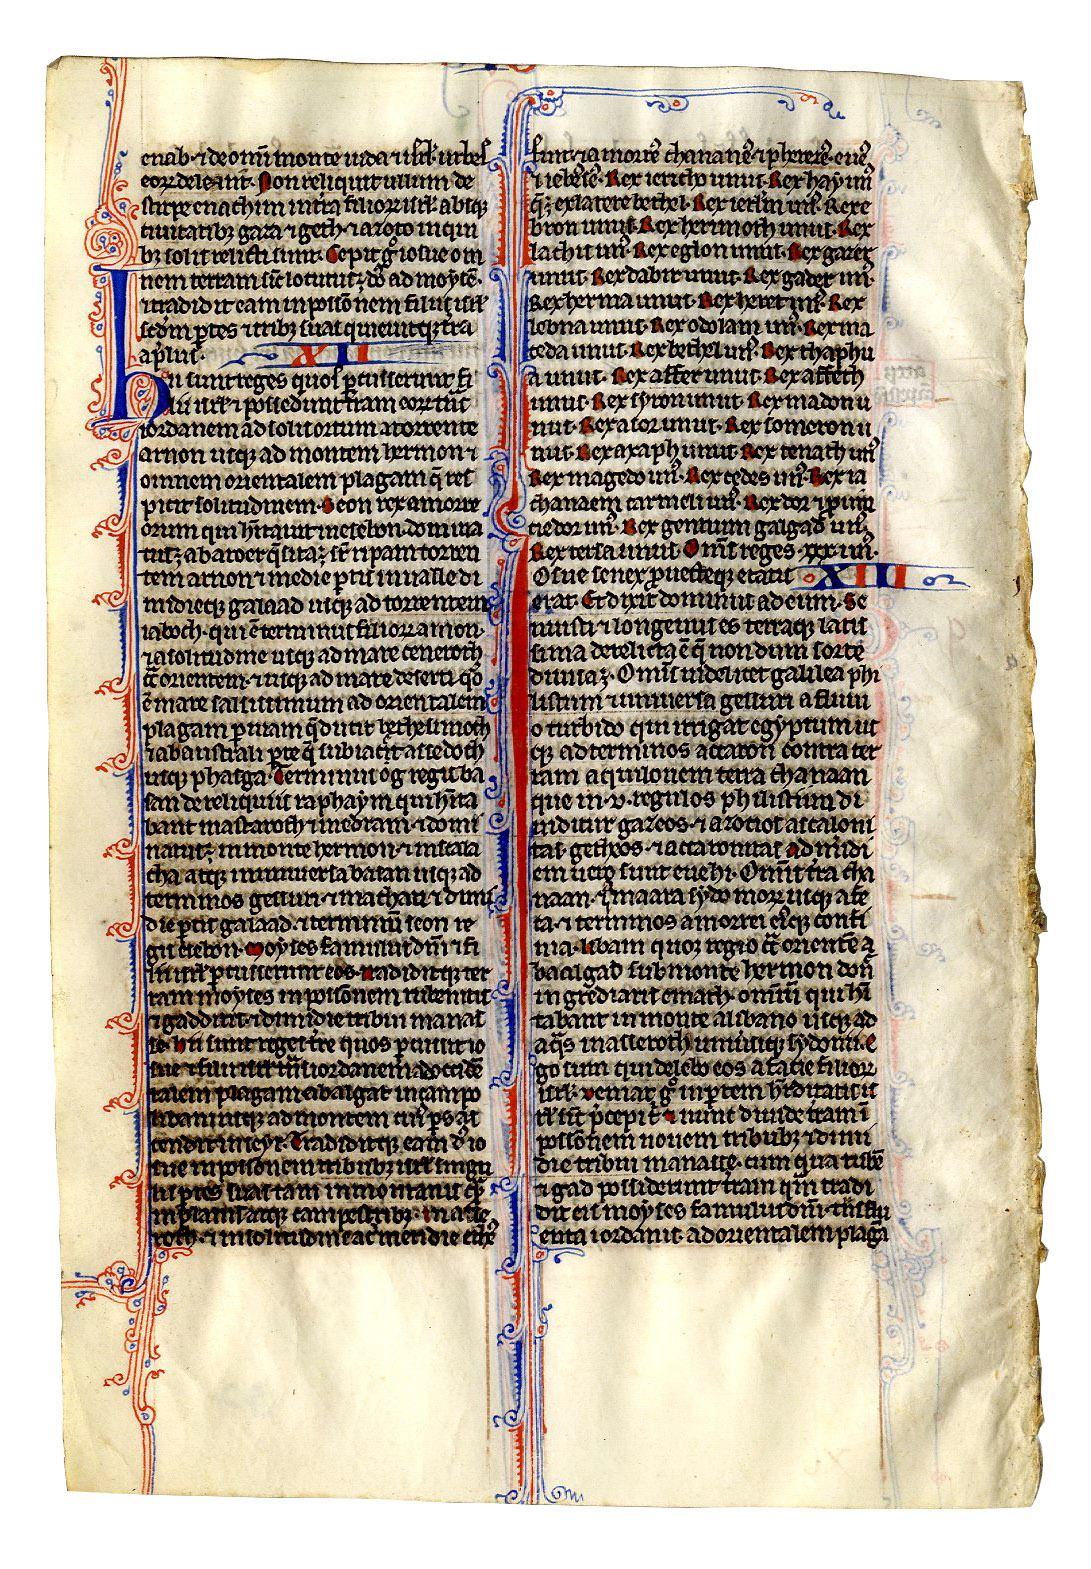 enab· ⁊ de om̄i monte iuda ⁊ isrl̓· urbes
eorꝝ deleuit· Non reliquit ullum de
stirpe enachim in t̓ra filiorꝝ isrl̓· absqꝫ
ciuitatibꝫ gaza ⁊ geth· ⁊ azoto in qui
bꝫ solis relicti sunt· Cepit g̊ iosue om
nem terram sic̄ locutus ꝫ dn̄s ad moysē·
⁊ tradidit eam in possōnem filiis isrl̓
scd̄m ꝑtes ⁊ tribꝫ suas quieuitqꝫ t̓ra
a p̄liis· XII
Hii sunt reges quos ꝑcusserunt fi
lii isrl̓ ⁊ possedunt t̓ram eorꝝ t̓ns
iordanem ad solis ortum a torrente
arnon usqꝫ ad montem hermon ⁊
omnem orientalem plagam q̄ res
picit solitudinem· Seon rex amorre
orum qui hītauit in esebon· domina
tus ꝫ ab aroer q̄ sita ꝫ sr̄ ripam torren
tem arnon ⁊ medie ꝑtis in ualle di
midieqꝫ galaad usqꝫ ad torrentem
iaboch· qui ē terminus filiorꝝ amon·
⁊ a solitudine usqꝫ ad mare ceneroth
c̄t̄ orientem· ⁊ usqꝫ ad mare deserti qd̓
ē mare salsissimum ad orientalem
plagam ꝑ uiam q̄ ducit bethesimoth
⁊ ab australi ꝑte q̄ subiac̄t asedoch
usqꝫ phasga· Terminus og regis ba
san de reliquiis raphaym qui hīta
bant in astaroth ⁊ in edrain· ⁊ domi
natus ꝫ in monte hermon· ⁊ in sala
cha atqꝫ in uniuersa basan usqꝫ ad
terminos gesuri· ⁊ machati ⁊ dimi
die ꝑtis galaad· ⁊ terminū seon re
gis esebon· Moyses famulus dn̄i ⁊ fi
lii isrl̓ ꝑcusserunt eos· Tradiditqꝫ ter
ram moyses in possōnem rubenitis
⁊ gadditis· ⁊ dimidie tribui manas
se· hii sunt reges t̓re quos ꝑcussit io
sue ⁊ filii isrl̓ t̓ns iordanem ad occidē
talem plagam a baalgat in campo
libani usqꝫ ad montem cuiꝰ ꝑs as
cendit in seyr· Tradiditqꝫ eam d̓s io
sue in possōnem tribubꝫ isrl̓ singu
lis ꝑtes suas tam in montanis qꝫ
in planis atqꝫ campestribꝫ· In ase
roth· ⁊ in solitudine ac meridie etheꝰ
fuit ⁊ amorreꝰ· chananeꝰ· ⁊ pherezeꝰ· eueꝰ
⁊ iebuseꝰ· Rex iericho unus· Rex hay unꝰ
q̄ ꝫ ex latere bethel· Rex ierl̄m unꝰ· Rex e
bron unus· Rex hermoth unus· Rex
lachis unꝰ· Rex eglon unus· Rex gazer
unus· Rex dabir unus· Rex gader unꝰ·
Rex herma unus· Rex heret unꝰ· Rex
lebna unus· Rex odolam unꝰ· Rex ma
ceda unus· Rex bethel unꝰ· Rex thaphu
a unus· Rex affer unus· Rex affech
unus· Rex syron unus· Rex madon u
nus· Rex asor unus· Rex someron u
nus· Rex axaph unus· Rex tenach unꝰ
Rex magedo unꝰ· Rex cedes unꝰ· Rex ia
chanaem carmeli unꝰ· Rex dor ⁊ prouin
cie dor unꝰ· Rex gentium galgad unꝰ·
Rex tersa unus· Om̄s reges ·xxx·unꝰ·
Iosue senex prouecteqꝫ etatis XIII
erat· Et dixit dominus ad eum· Se
nuisti ⁊ longeuus es terraqꝫ latis
sima derelicta ē q̄ nondum sorte
diuisa ꝫ· Om̄is uidelicet galilea phi
listiim ⁊ uniuersa gessuri a fluui
o turbido qui irrigat egyptum us
qꝫ ad terminos accaron contra ter
ram aquilonem terra chanaan
que in ·v· regulos philistiim di
uiditur gazeos· ⁊ azotios ascaloni
tas· getheos· ⁊ accaronitas Ad meridi
em uero sunt euehi· Om̄is t̓ra cha
naan· ⁊ maara sydoniorꝝ usqꝫ afe
ta· ⁊ terminos amorrei eiꝰqꝫ confi
nia· Libani quoqꝫ regio c̄t̄ orientē a
baalgad sub monte hermon don̄
ingrediaris emath· omniū qui hī
tabant in monte a libano usqꝫ ad
aq̄s maseroth uniuersiqꝫ sydonii· E
go sum qui delebo eos a facie filiorꝝ
isrl̓· Ueniat g̊ in ꝑtem hēditatis is
rl̓ sic̄ p̄cepi t̄· Et nunc diuide t̓ram ī
possōnem nouem tribubꝫ ⁊ dimi
die tribui manasse· cum qua rubē
⁊ gad possiderunt t̓ram qm̄ tradi
dit eis moyses famulus dn̄i· t̓ns flu
enta iordanis· ad orientalem plagā